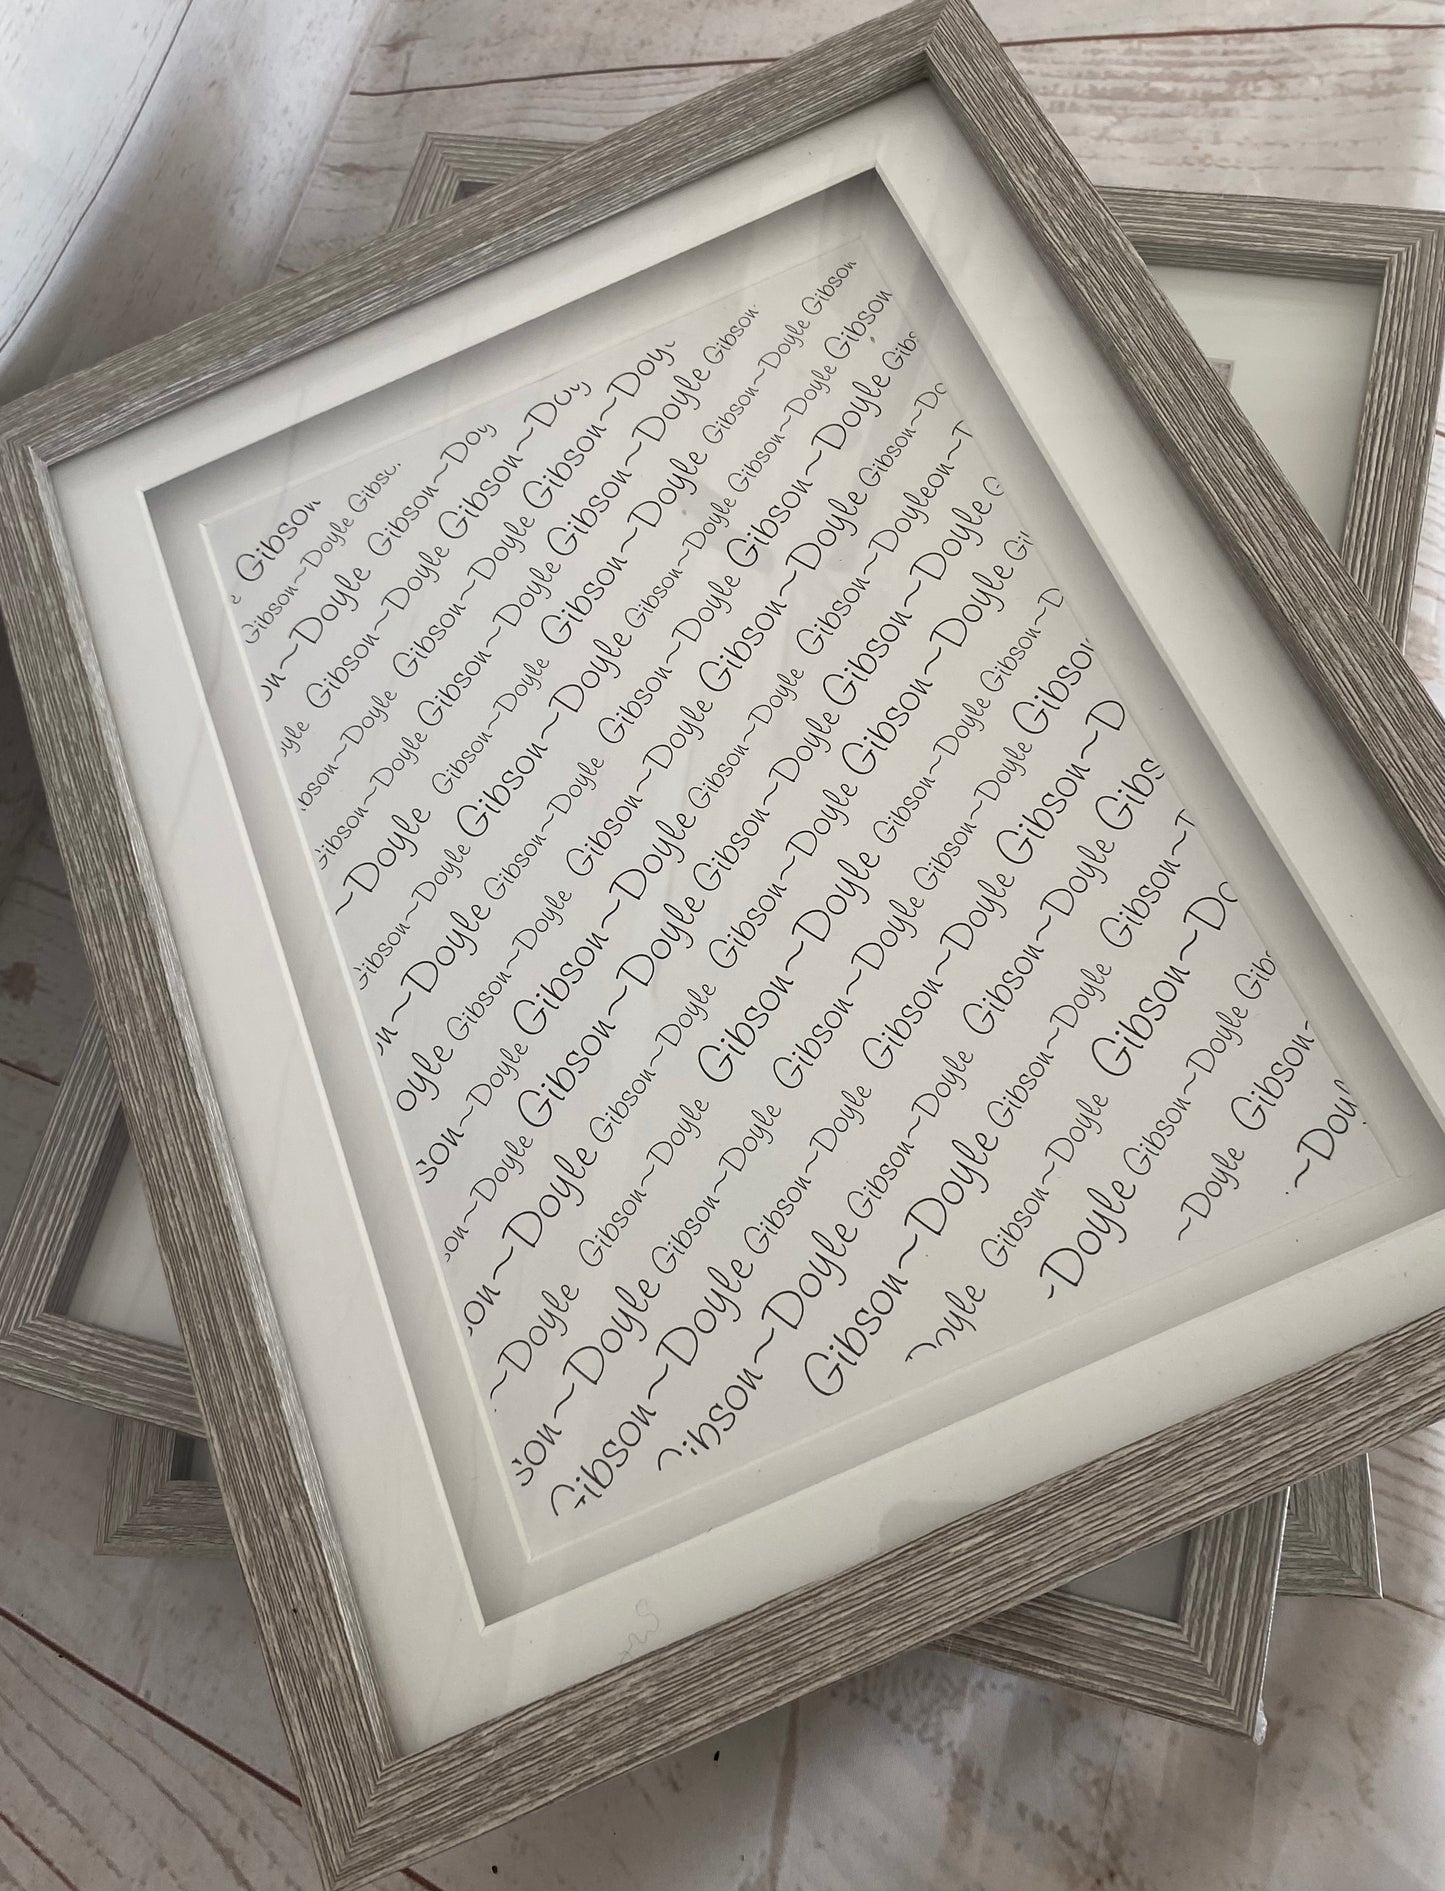 Gibson
Gibson~Doyle Gibso
~Doyle Gibson~Doy
Gibson~Doyle Gibson~Doy
yle Gibson~Doyle Gibson~Doy
Gibson~Doyle Gibson~Doyle Gibson
Gibson~Doyle Gibson~Doyle Gibson~Doyle Gibson
~Doyle Gibson~Doyle Gibson~Doyle Gibson~Doyle Gibson
Gibson~Doyle Gibson~Doyle Gibson~Doyle Gibson~Doyle Gibs
~Doyle Gibson~Doyle Gibson~Doyle Gibson~Doyle Gibson~Do
oyle Gibson~Doyle Gibson~Doyle Gibson~Doyle Gibson~Doyleon~
son~Doyle Gibson~Doyle Gibson~Doyle Gibson~Doyle G
son~Doyle Gibson~Doyle Gibson~Doyle Gibson~Doyle Gi
on~Doyle Gibson~Doyle Gibson~Doyle Gibson~Doyle Gibson~D
~Doyle Gibson~Doyle Gibson~Doyle Gibson~Doyle Gibson
son~Doyle Gibson~Doyle Gibson~Doyle Gibson~D
Gibson~Doyle Gibson~Doyle Gibson~Doyle Gibs
ibson~Doyle Gibson~Doyle Gibson~Doyle Gibson~
Gibson~Doyle Gibson~Doyle Gibson~Do
oyle Gibson~Doyle Gibson~Doyle Gibs
~Doyle Gibson~Doyle Gibson~
~Doyle Gibson~
~Doyl